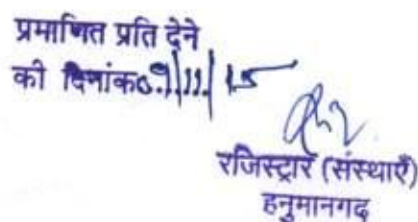 प्रमाणित प्रति देने
की दिनांक 09/11/15
रजिस्ट्रार (संस्थाएँ)
हनुमानगढ़